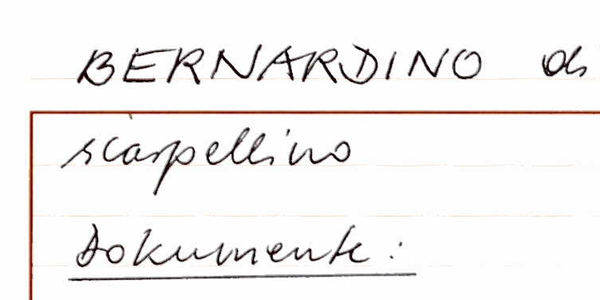 BERNARDINO di
scarpellino
Dokumente: